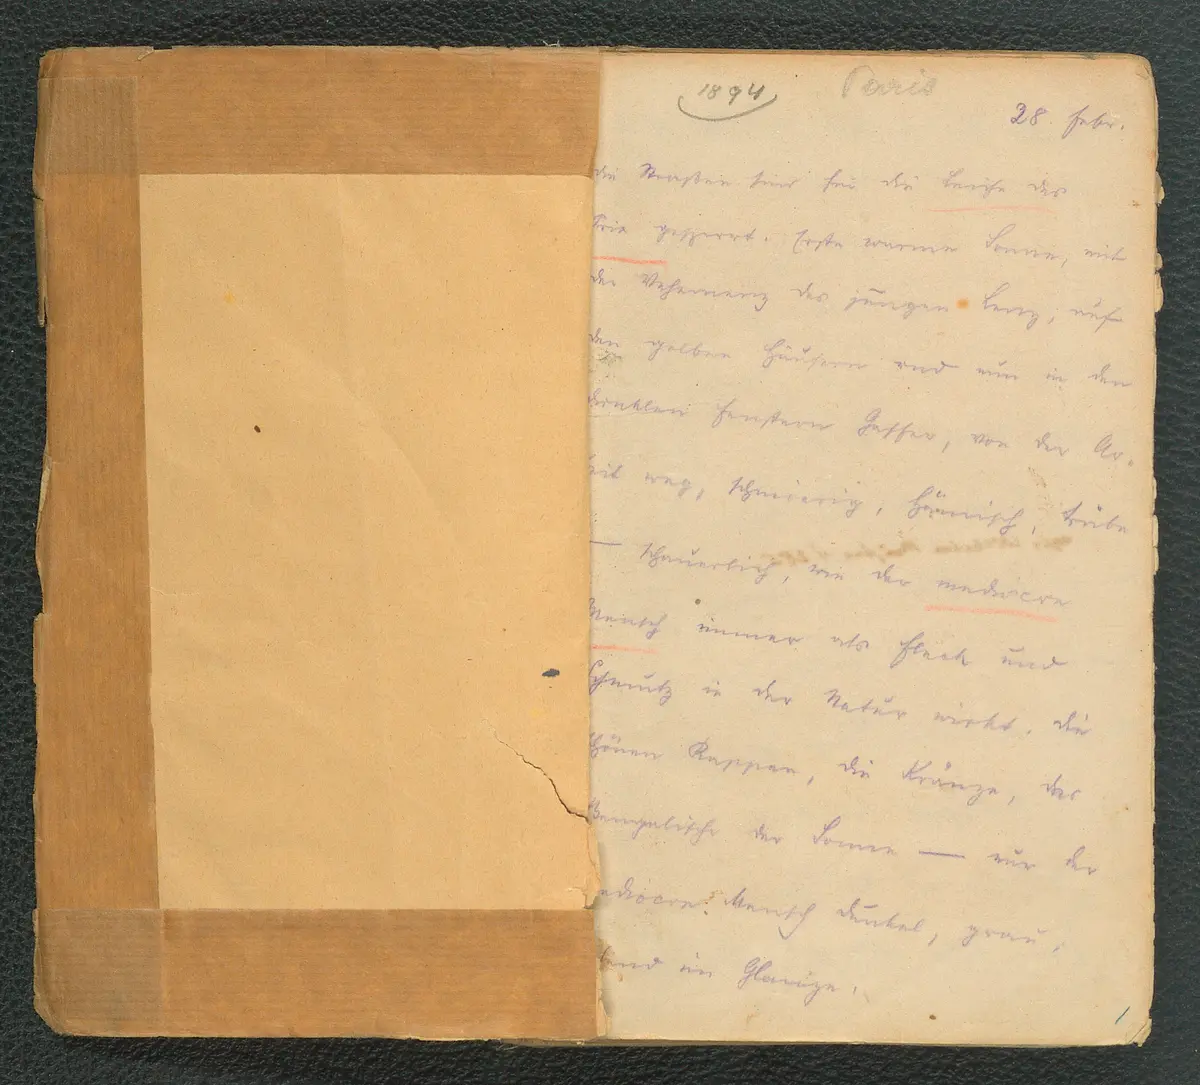 1894 Paris
28. Febr.
die Straßen sind für die Leiche des
gesperrt. Erste warme Sonne, mit
der Vehemenz des jungen Lenz, auf
den gelben Häusern und nun in den
dunklen Fenstern Gaffer, von der Ar-
beit weg, schmierig, hämisch, trübe
— schauerlich, wie der mediocre
Mensch immer als Fleck und
Schmutz in der Natur wirkt. Die
schönen Rappen, die Kränze, das
Bengalische der Sonne — nur der
mediocre Mensch dunkel, grau,
im Glanze.
1